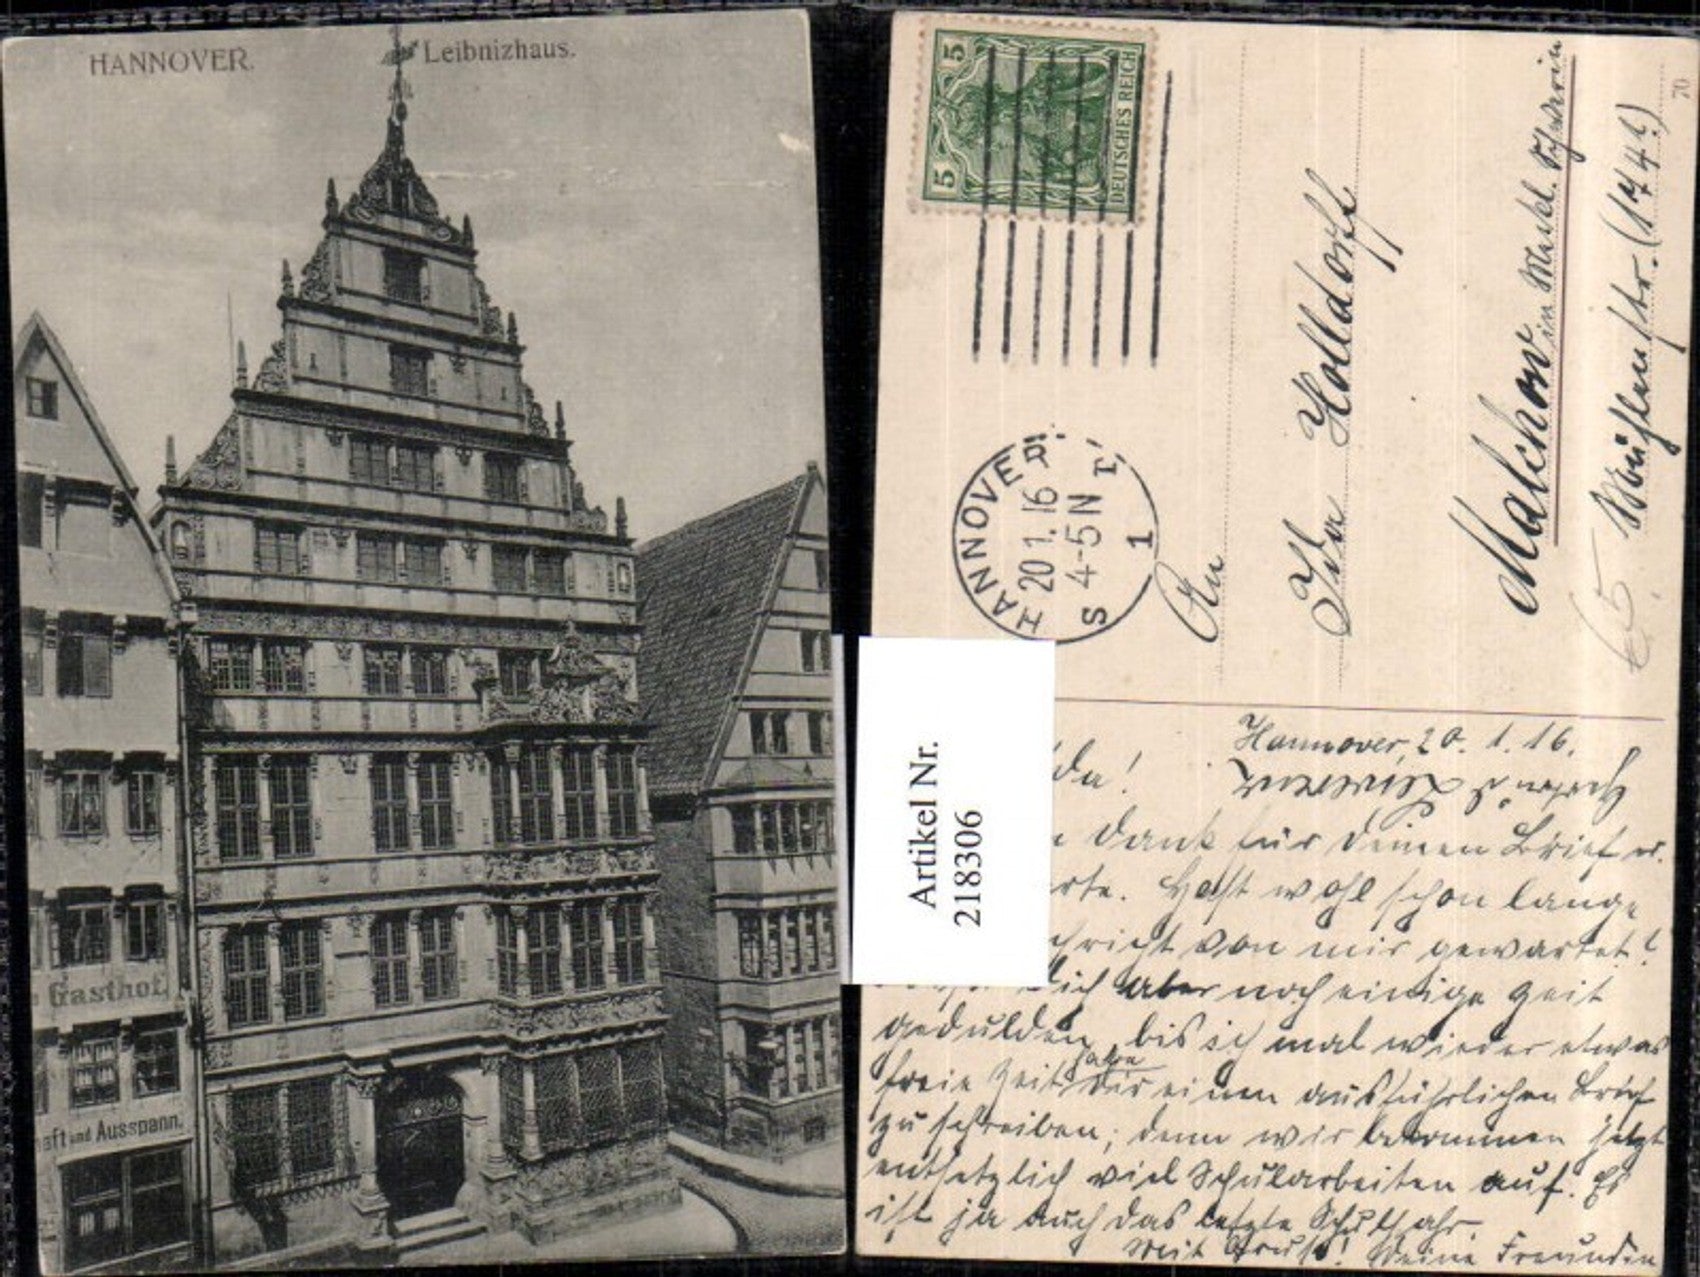 HANNOVER.
Leibnizhaus.
Gasthof.
und Ausspann.
5 5
DEUTSCHES REICH
HANNOVER
20 1.16
4-5N
S 1 r
70
An
Ida Holldorff
Malchow in Meckl. Schwerin
Mühlenstr. (174!)
€5
Artikel Nr.
2183306
Hannover, 20. 1. 16.
da!
Dank für Deinen Brief u.
Hast wohl schon lange
von mir gewartet!
Dich aber noch einige Zeit
gedulden, bis ich mal wieder etwas
freie Zeit habe Dir einen ausführlichen Brief
zu schreiben; denn wir bekommen jetzt
entsetzlich viel Schularbeiten auf. Es
ist ja auch das letzte Schuljahr.
Mit Gruß! Deine Freundin